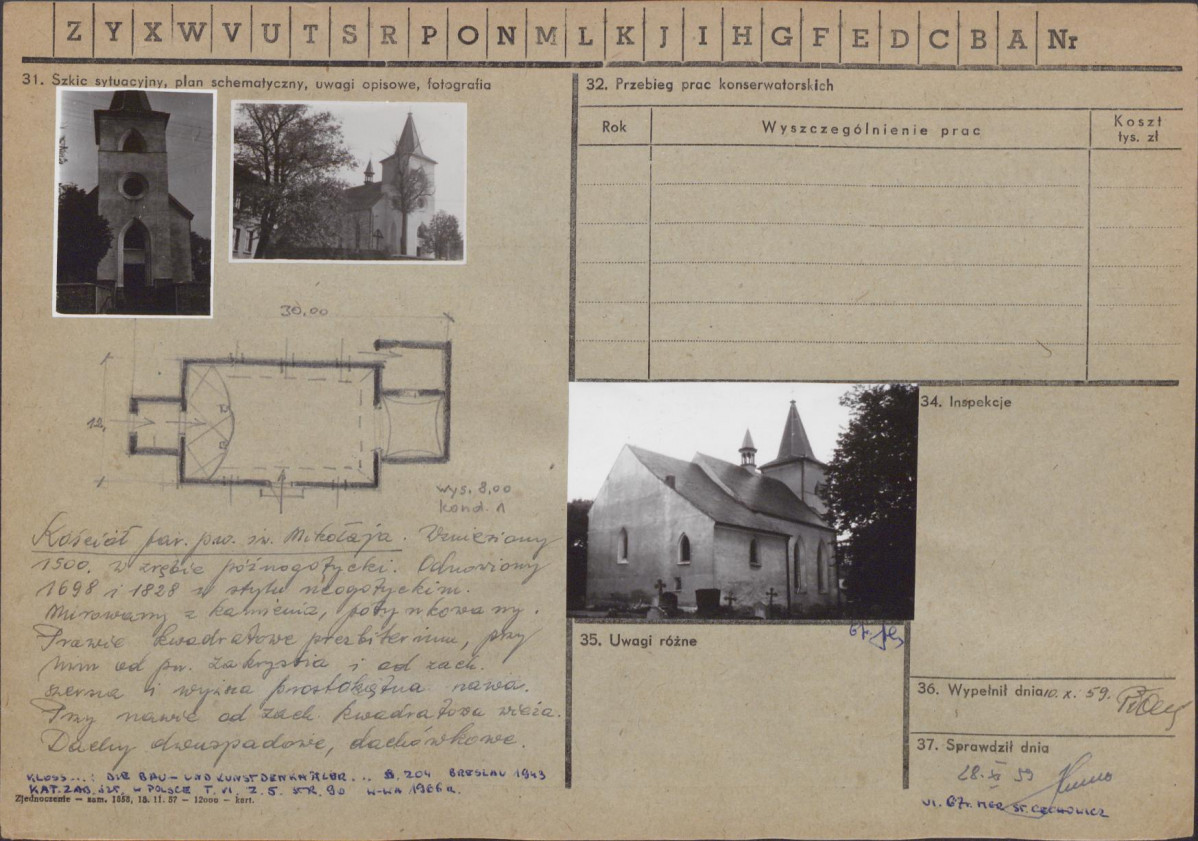 Z Y X W V U T S R P O N M L K J I H G F E D C B A Nr
31. Szkic sytuacyjny, plan schematyczny, uwagi opisowe, fotografia
30,00
12,
wys. 8,00
kond. 1
Kościół par. pw. św. Mikołaja. Wzniesiony
1500. w zrębie późnogotycki. Odnowiony
1698 i 1828 w stylu neogotyckim.
Murowany z kamienia, potynkowany.
Prawie kwadratowe prezbiterium, przy
nim od pn. zakrystia i od zach.
szersza i wyższa prostokątna nawa.
Przy nawie od zach. kwadratowa wieża.
Dachy dwuspadowe, dachówkowe.
KLOSS...: DIE BAU- UND KUNSTDENKMÄLER... S. 204 BRESLAU 1943
KAT. ZAB. SZT. W POLSCE T. VI, Z. 5. STR. 90 W-WA 1966 R.
Zjednoczenie — zam. 1858, 15. 11. 57 — 12000 — kart.
32. Przebieg prac konserwatorskich
Rok
Wyszczególnienie prac
Koszt
tys. zł
34. Inspekcje
35. Uwagi różne
67r.
36. Wypełnił dnia 10. X. 59.
37. Sprawdził dnia
28. XI 59
VI. 67r. MGR ST. CZECHOWICZ